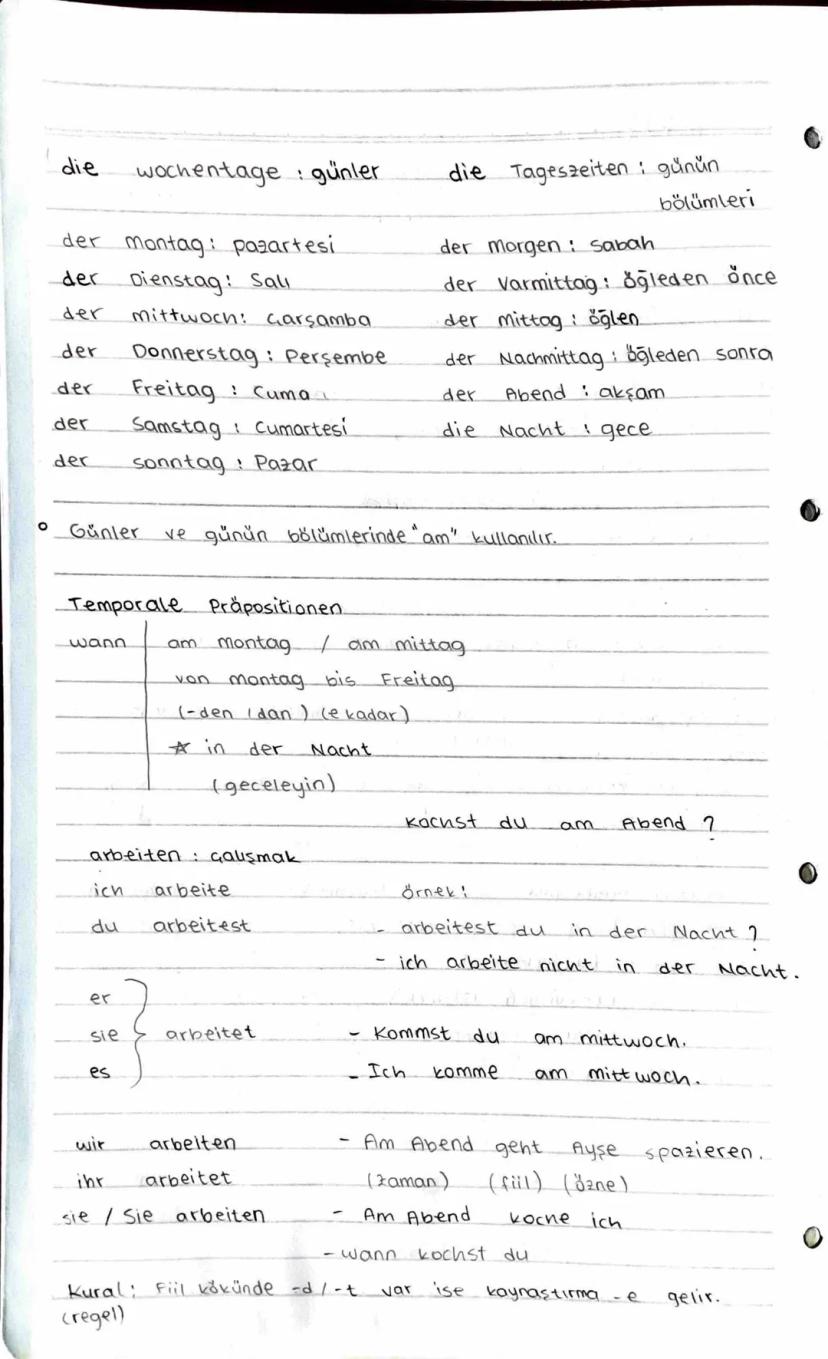 die wochentage : günler
die Tageszeiten : günün
bölümleri
der montag : pazartesi
der Dienstag : Salı
der mittwoch : Çarşamba
der Donnerstag : Perşembe
der Freitag : Cuma
der Samstag : Cumartesi
der sonntag : Pazar
der morgen : sabah
der Varmittag : öğleden önce
der mittag : öğlen
der Nachmittag : öğleden sonra
der Abend : akşam
die Nacht : gece
° Günler ve günün bölümlerinde "am" kullanılır.
Temporale Präpositionen
wann am montag / am mittag
von montag bis Freitag
(-den / dan) (e kadar)
☆ in der Nacht
(geceleyin)
kochst du am Abend ?
arbeiten : çalışmak
ich arbeite
du arbeitest
er
sie } arbeitet
es
wir arbeiten
ihr arbeitet
sie / Sie arbeiten
örnek :
- arbeitest du in der Nacht ?
- ich arbeite nicht in der Nacht.
- Kommst du am mittwoch.
- Ich komme am mittwoch.
- Am Abend geht Ayşe spazieren.
(zaman) (fiil) (özne)
- Am Abend koche ich
- wann kochst du
Kural : Fiil kökünde -d / -t var ise kaynaştırma -e gelir.
(regel)